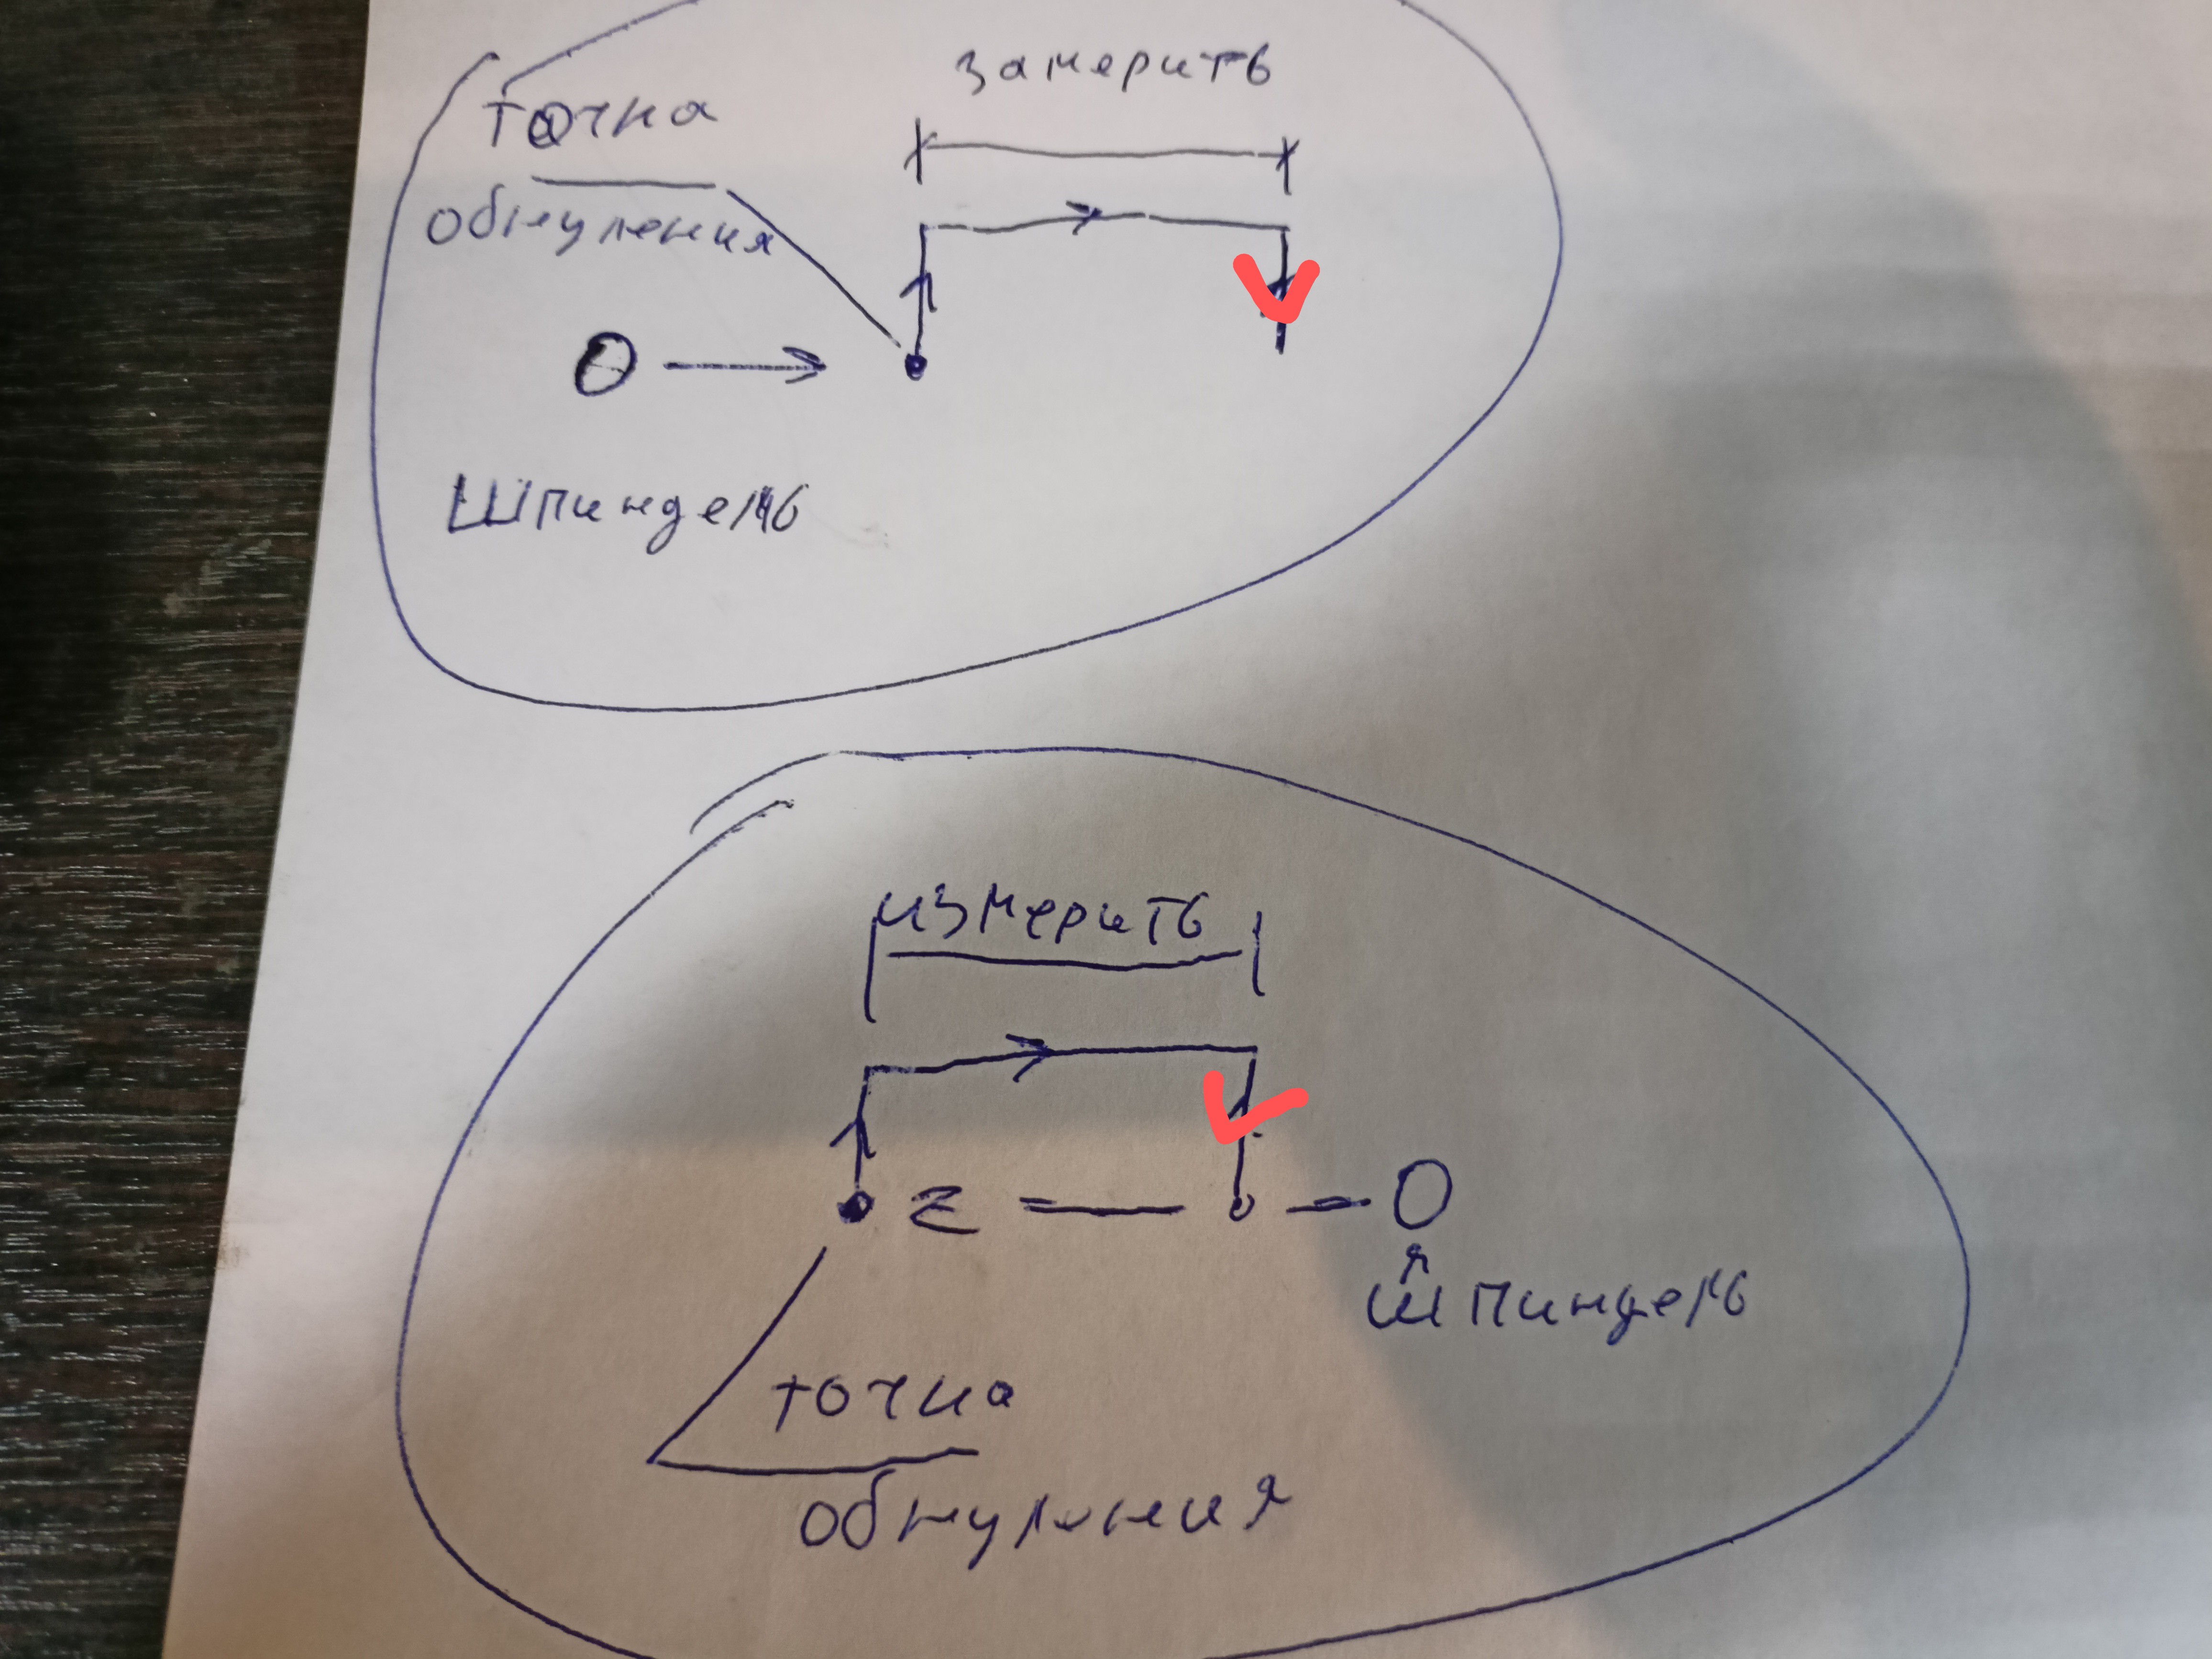 замерить
точка
обнуления
Шпиндель
измерить
шпиндель
точка
обнуления